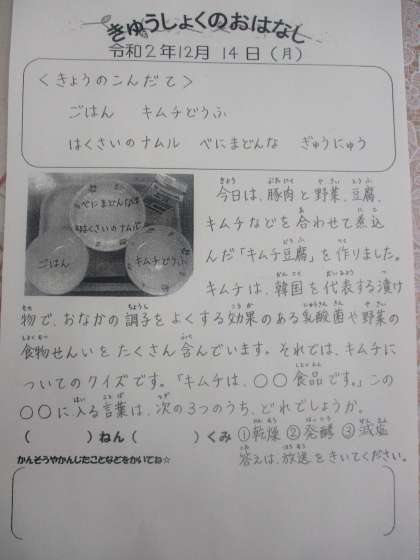 きゅうしょくのおはなし
令和2年12月 14日(月)
＜きょうのこんだて＞
ごはん キムチどうふ
はくさいのナムル べにまどんな ぎゅうにゅう
べにまどんな
はくさいのナムル
ごはん
キムチどうふ
今日は、豚肉と野菜、豆腐、
キムチなどを合わせて煮込
んだ「キムチ豆腐」を作りました。
キムチは、韓国を代表する漬け
物で、おなかの調子をよくする効果のある乳酸菌や野菜の
食物せんいをたくさん含んでいます。それでは、キムチに
ついてのクイズです。「キムチは、○○食品です。」この
○○に入る言葉は、次の3つのうち、どれでしょうか。
( )ねん( )くみ ①乾燥 ②発酵 ③減塩
かんそうやかんじたことなどをかいてね☆ 答えは、放送をきいてください。